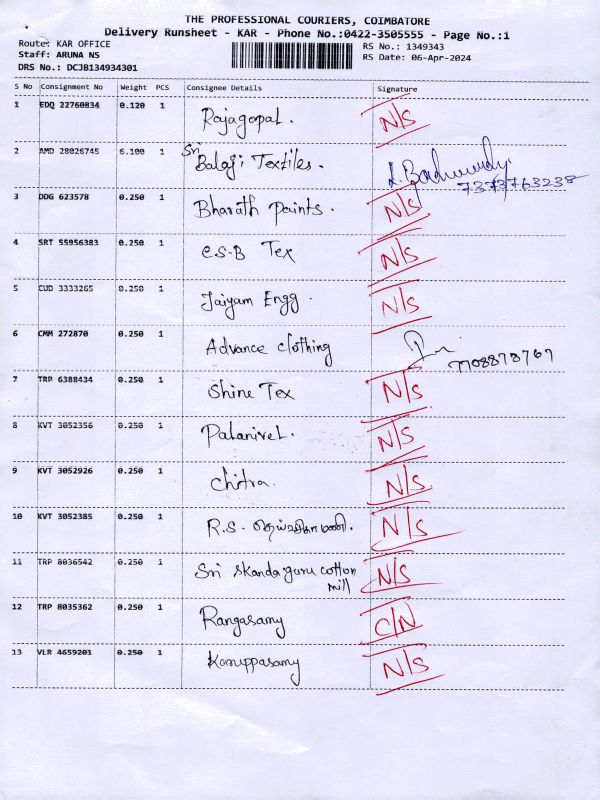 THE PROFESSIONAL COURIERS, COIMBATORE
Delivery Runsheet - KAR - Phone No.:0422-3505555 - Page No.:1
Route: KAR OFFICE
Staff: ARUNA NS
DRS No.: DCJB134934301
RS No.: 1349343
RS Date: 06-Apr-2024
S No Consignment No Weight PCS Consignee Details Signature
1 EDQ 22760834 0.120 1 Rajagopal. N/S
2 AMD 28026745 6.100 1 Sri Balaji Textiles.
7373763238
3 DDG 623578 0.250 1 Bharath paints. N/S
4 SRT 55956383 0.250 1 C.S.B Tex N/S
5 CUD 3333265 0.250 1 Jaiyam Engg. N/S
6 CMM 272870 0.250 1 Advance clothing
7708878767
7 TRP 6388434 0.250 1 Shine Tex N/S
8 KVT 3052356 0.250 1 Palanivel. N/S
9 KVT 3052926 0.250 1 Chitra. N/S
10 KVT 3052385 0.250 1 R.S. N/S
11 TRP 8036542 0.250 1 Sri Skanda guru cotton N/S
mill
12 TRP 8035362 0.250 1 Rangasamy C/N
13 VLR 4659201 0.250 1 Karuppasamy N/S